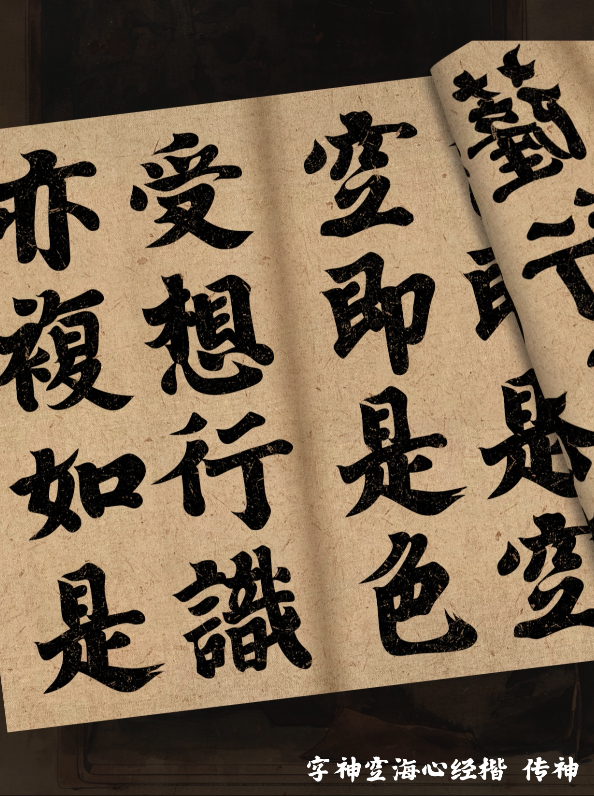 即是空
空即是色
受想行識
亦複如是
字神空海心经楷 传神